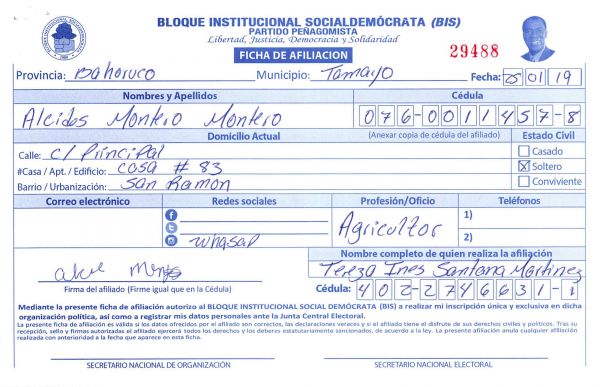 BLOQUE INSTITUCIONAL SOCIALDEMÓCRATA (BIS)
PARTIDO PEÑAGOMISTA
Libertad, Justicia, Democracia y Solidaridad
FICHA DE AFILIACION
29488
Provincia: Bahoruco Municipio: Tamayo Fecha: 25/01/19
Nombres y Apellidos Cédula
Alcides Montero Montero 076-0011457-8
Domicilio Actual (Anexar copia de cédula del afiliado) Estado Civil
Calle: c/ Principal Casado
#Casa / Apt. / Edificio: casa # 83 Soltero
Barrio / Urbanización: San Ramon Conviviente
Correo electrónico Redes sociales Profesión/Oficio Teléfonos
Agricultor 1)
whasap 2)
Nombre completo de quien realiza la afiliación
Tereza Ines Santana Martinez
Firma del afiliado (Firme igual que en la Cédula) Cédula: 402-2746631-1
Mediante la presente ficha de afiliación autorizo al BLOQUE INSTITUCIONAL SOCIAL DEMÓCRATA (BIS) a realizar mi inscripción única y exclusiva en dicha
organización política, así como a registrar mis datos personales ante la Junta Central Electoral.
La presente ficha de afiliación es válida si los datos ofrecidos por el afiliado son correctos, las declaraciones veraces y si el afiliado tiene el disfrute de sus derechos civiles y políticos. Tras su
recepción, sello y firmas autorizadas el afiliado ejercerá todos los derechos y los deberes estatutariamente sancionados, de acuerdo a la ley. La presente afiliación anula cualquier afiliación
realizada con anterioridad a la fecha que aparece en esta ficha.
SECRETARIO NACIONAL DE ORGANIZACIÓN SECRETARIO NACIONAL ELECTORAL